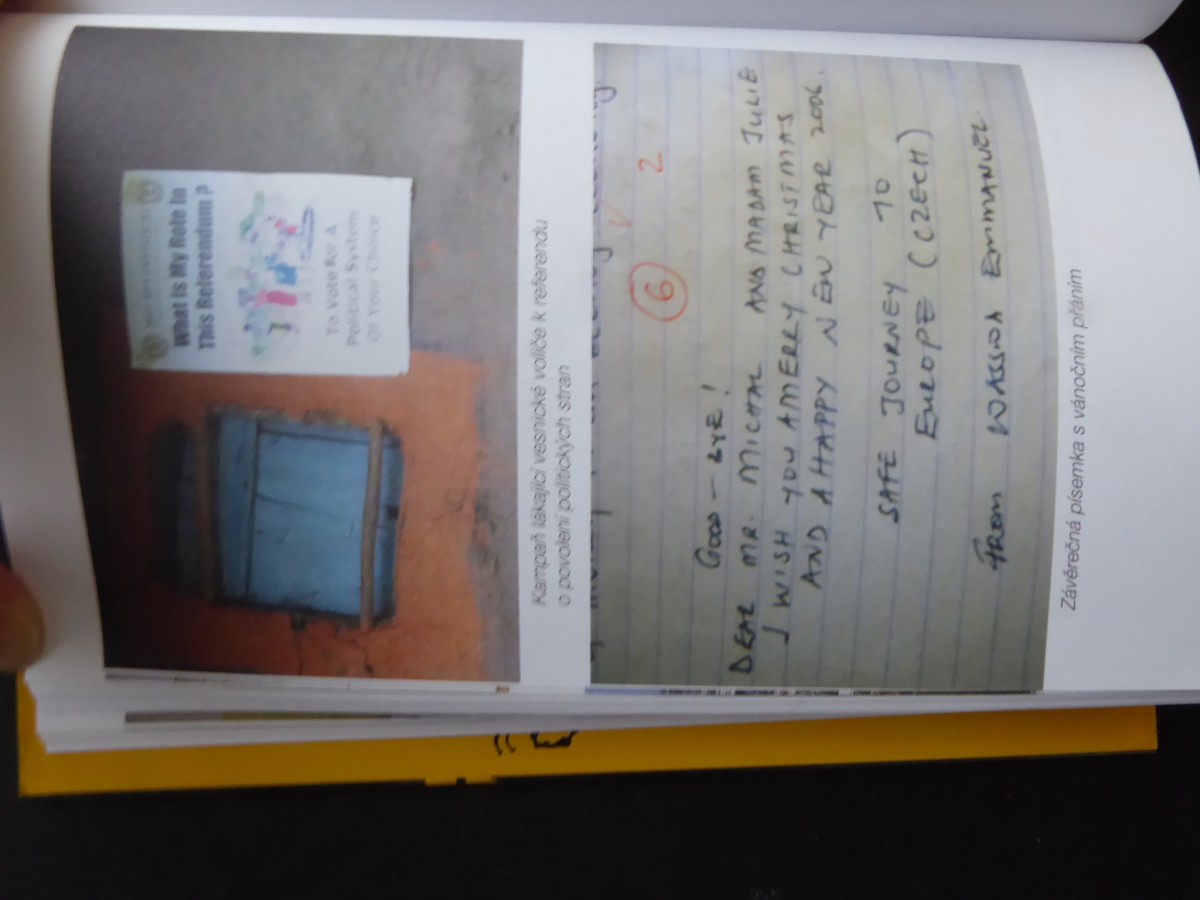 What Is My Role In
This Referendum ?
To Vote for A
Political System
Of Your Choice
Kampaň lákající vesnické voliče k referendu
o povolení politických stran
6 2
GOOD - BYE !
DEAR MR. MICHAL AND MADAM JULIE
I WISH YOU AMERRY CHRISTMAS
AND AHAPPY NEW YEAR 2006.
SAFE JOURNEY TO
EUROPE (CZECH)
FROM WASSWA EMMANUEL.
Závěrečná písemka s vánočním přáním